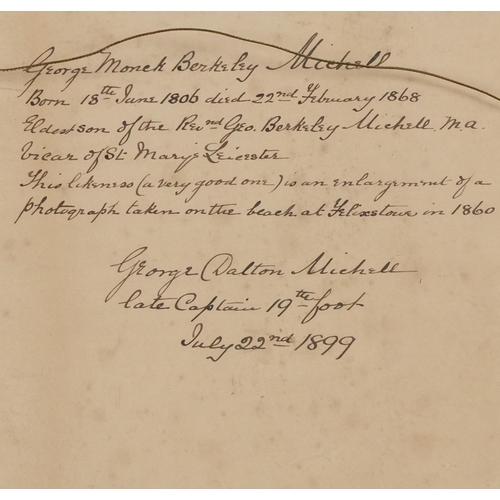 George Monck Berkeley Michell
Born 18th June 1806 died 22nd February 1868
Eldest son of the Revnd Geo. Berkeley Michell M.a.
Vicar of St. Mary's Leicester
This likeness (a very good one) is an enlargement of a
photograph taken on the beach at Felixstowe in 1860
George Dalton Michell
late Captain 19th foot
July 22nd 1899